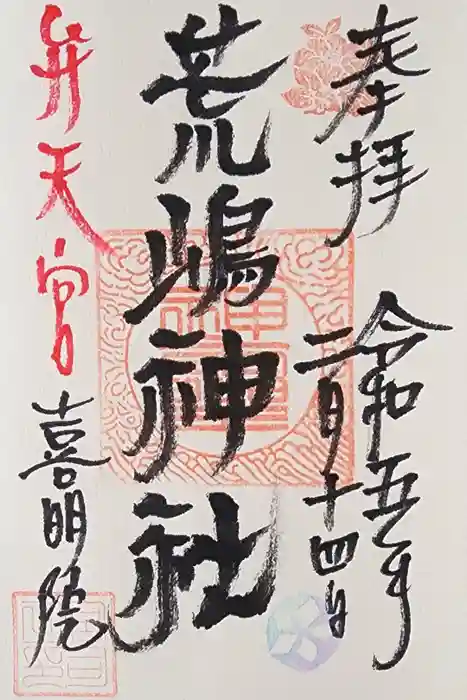 奉拝
令和五年
二月十四日
荒嶋神社
弁天宮
喜明院